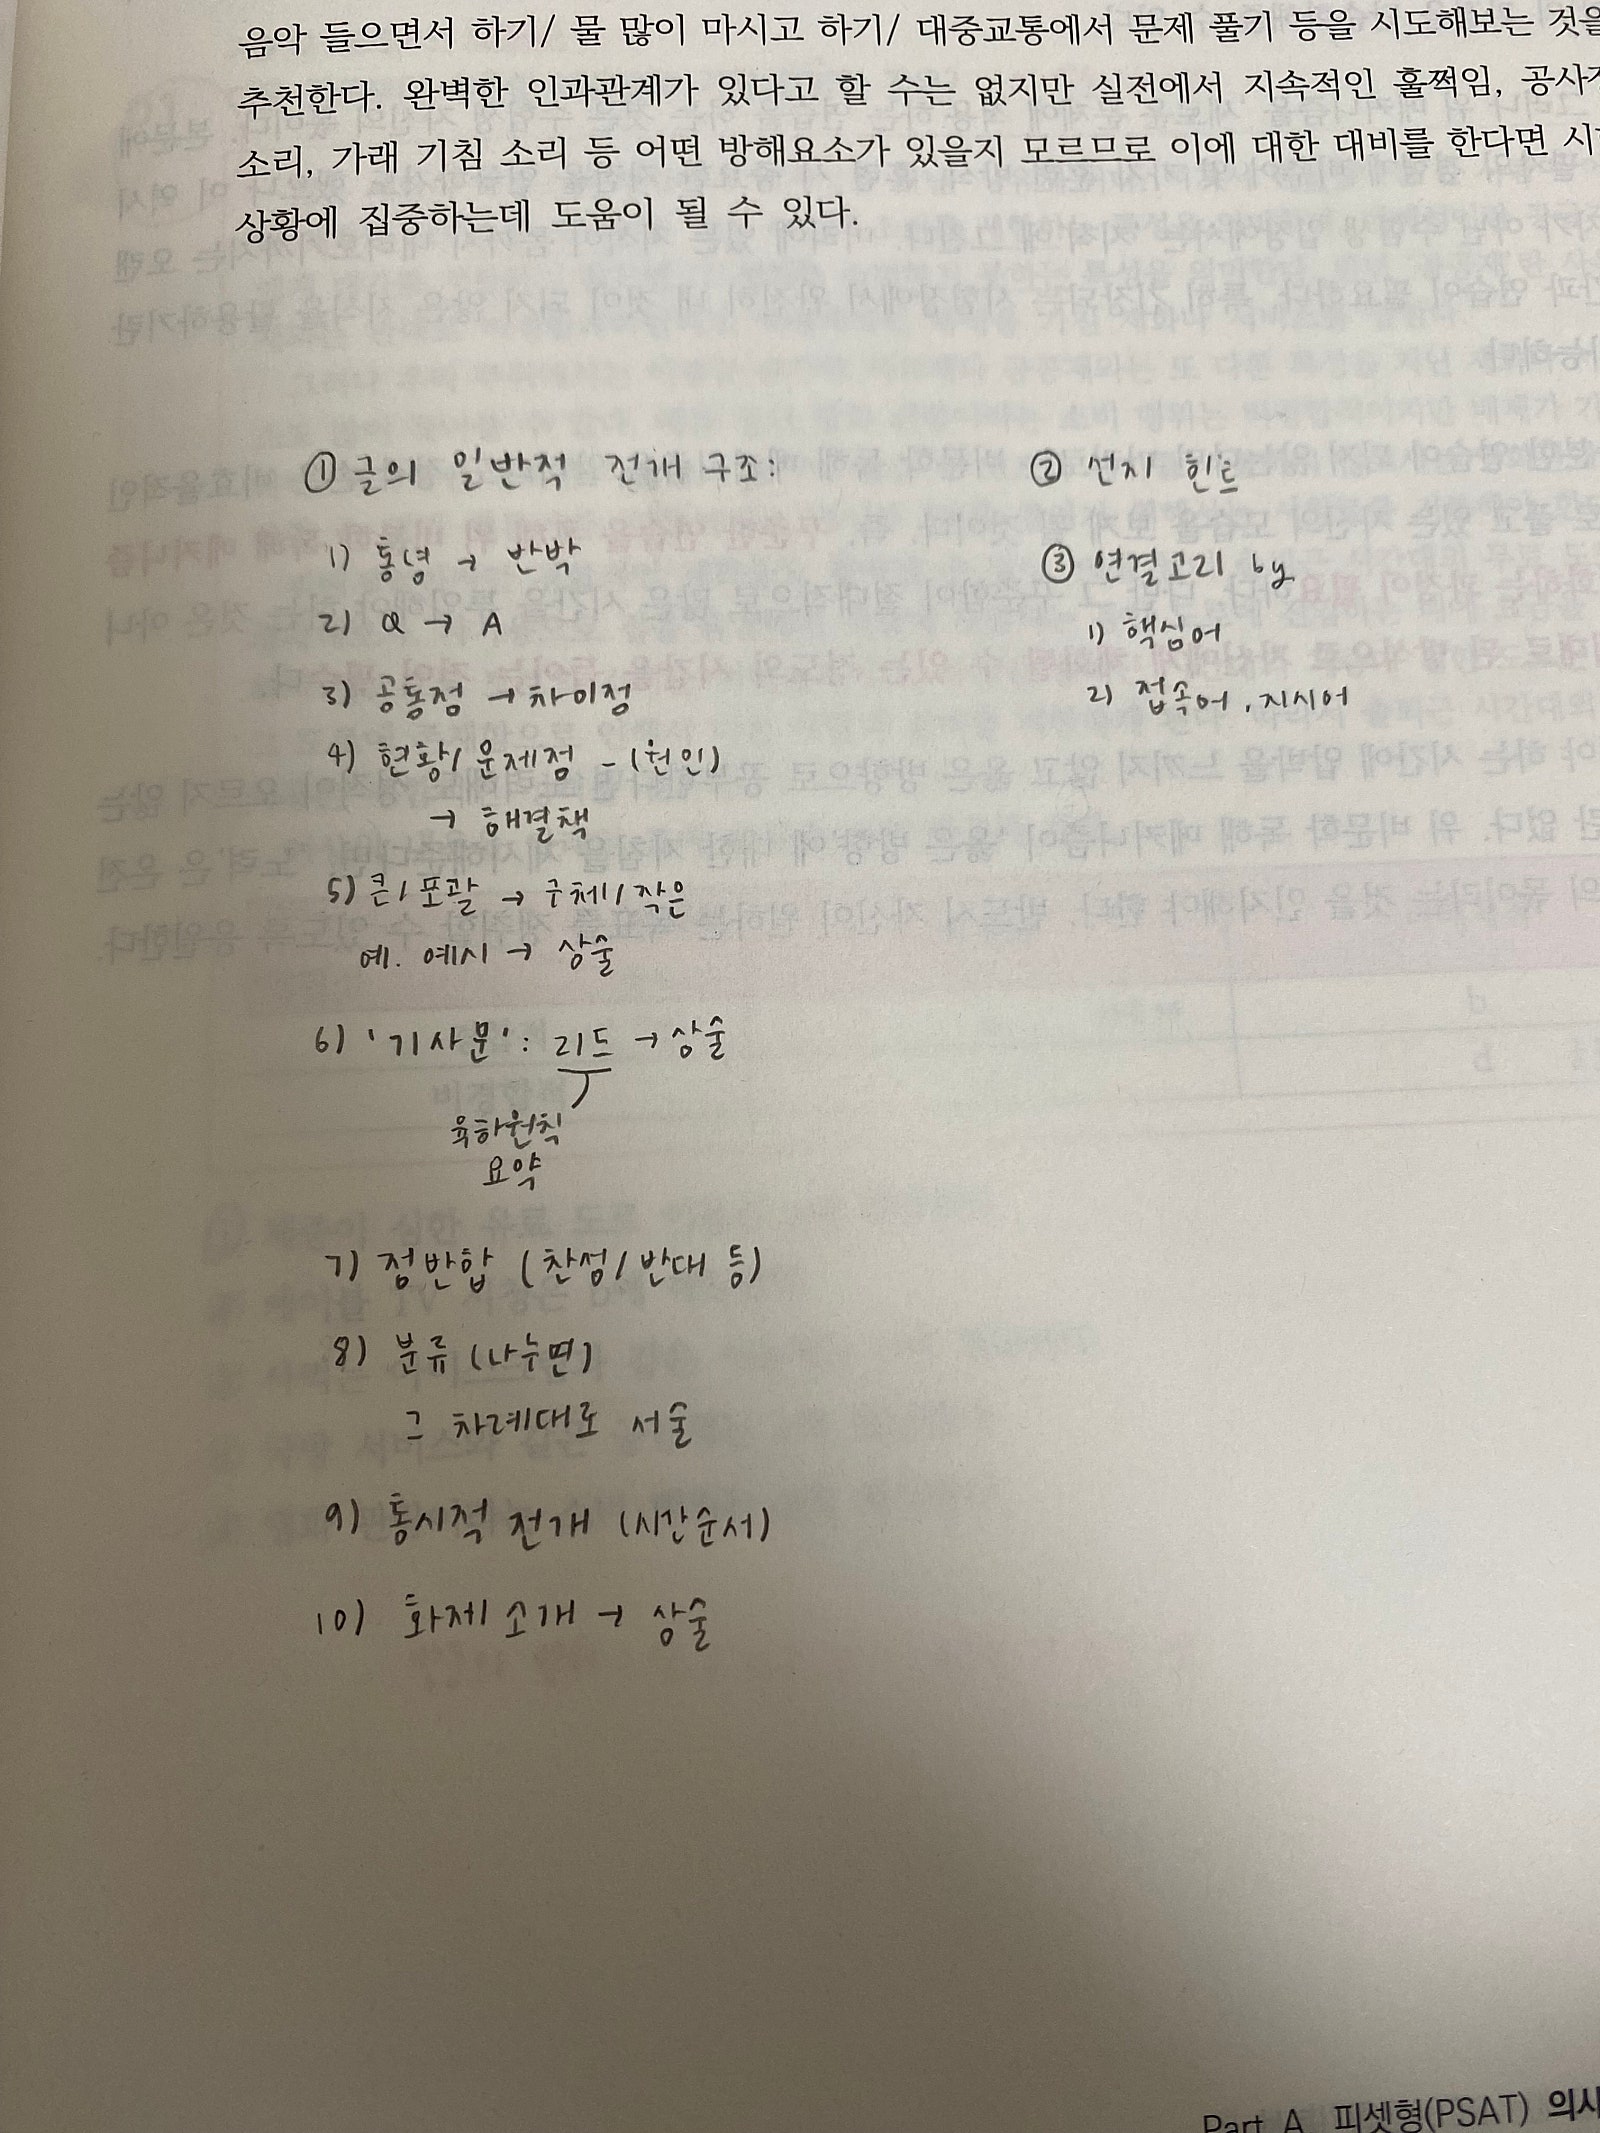 음악 들으면서 하기/ 물 많이 마시고 하기/ 대중교통에서 문제 풀기 등을 시도해보는 것을
추천한다. 완벽한 인과관계가 있다고 할 수는 없지만 실전에서 지속적인 훌쩍임, 공사
소리, 가래 기침 소리 등 어떤 방해요소가 있을지 모르므로 이에 대한 대비를 한다면
상황에 집중하는데 도움이 될 수 있다.
① 글의 일반적 전개 구조:
1) 통념 → 반박
2) Q → A
3) 공통점 → 차이점
4) 현황/문제점 - (원인)
→ 해결책
5) 큰/포괄 → 구체/작은
예. 예시 → 상술
6) '기사문': 리드 → 상술
육하원칙
요약
7) 정반합 (찬성/반대 등)
8) 분류 (나누면)
그 차례대로 서술
9) 통시적 전개 (시간순서)
10) 화제 소개 → 상술
② 선지 힌트
③ 연결고리 by
1) 핵심어
2) 접속어, 지시어
Part A 피셋형(PSAT)